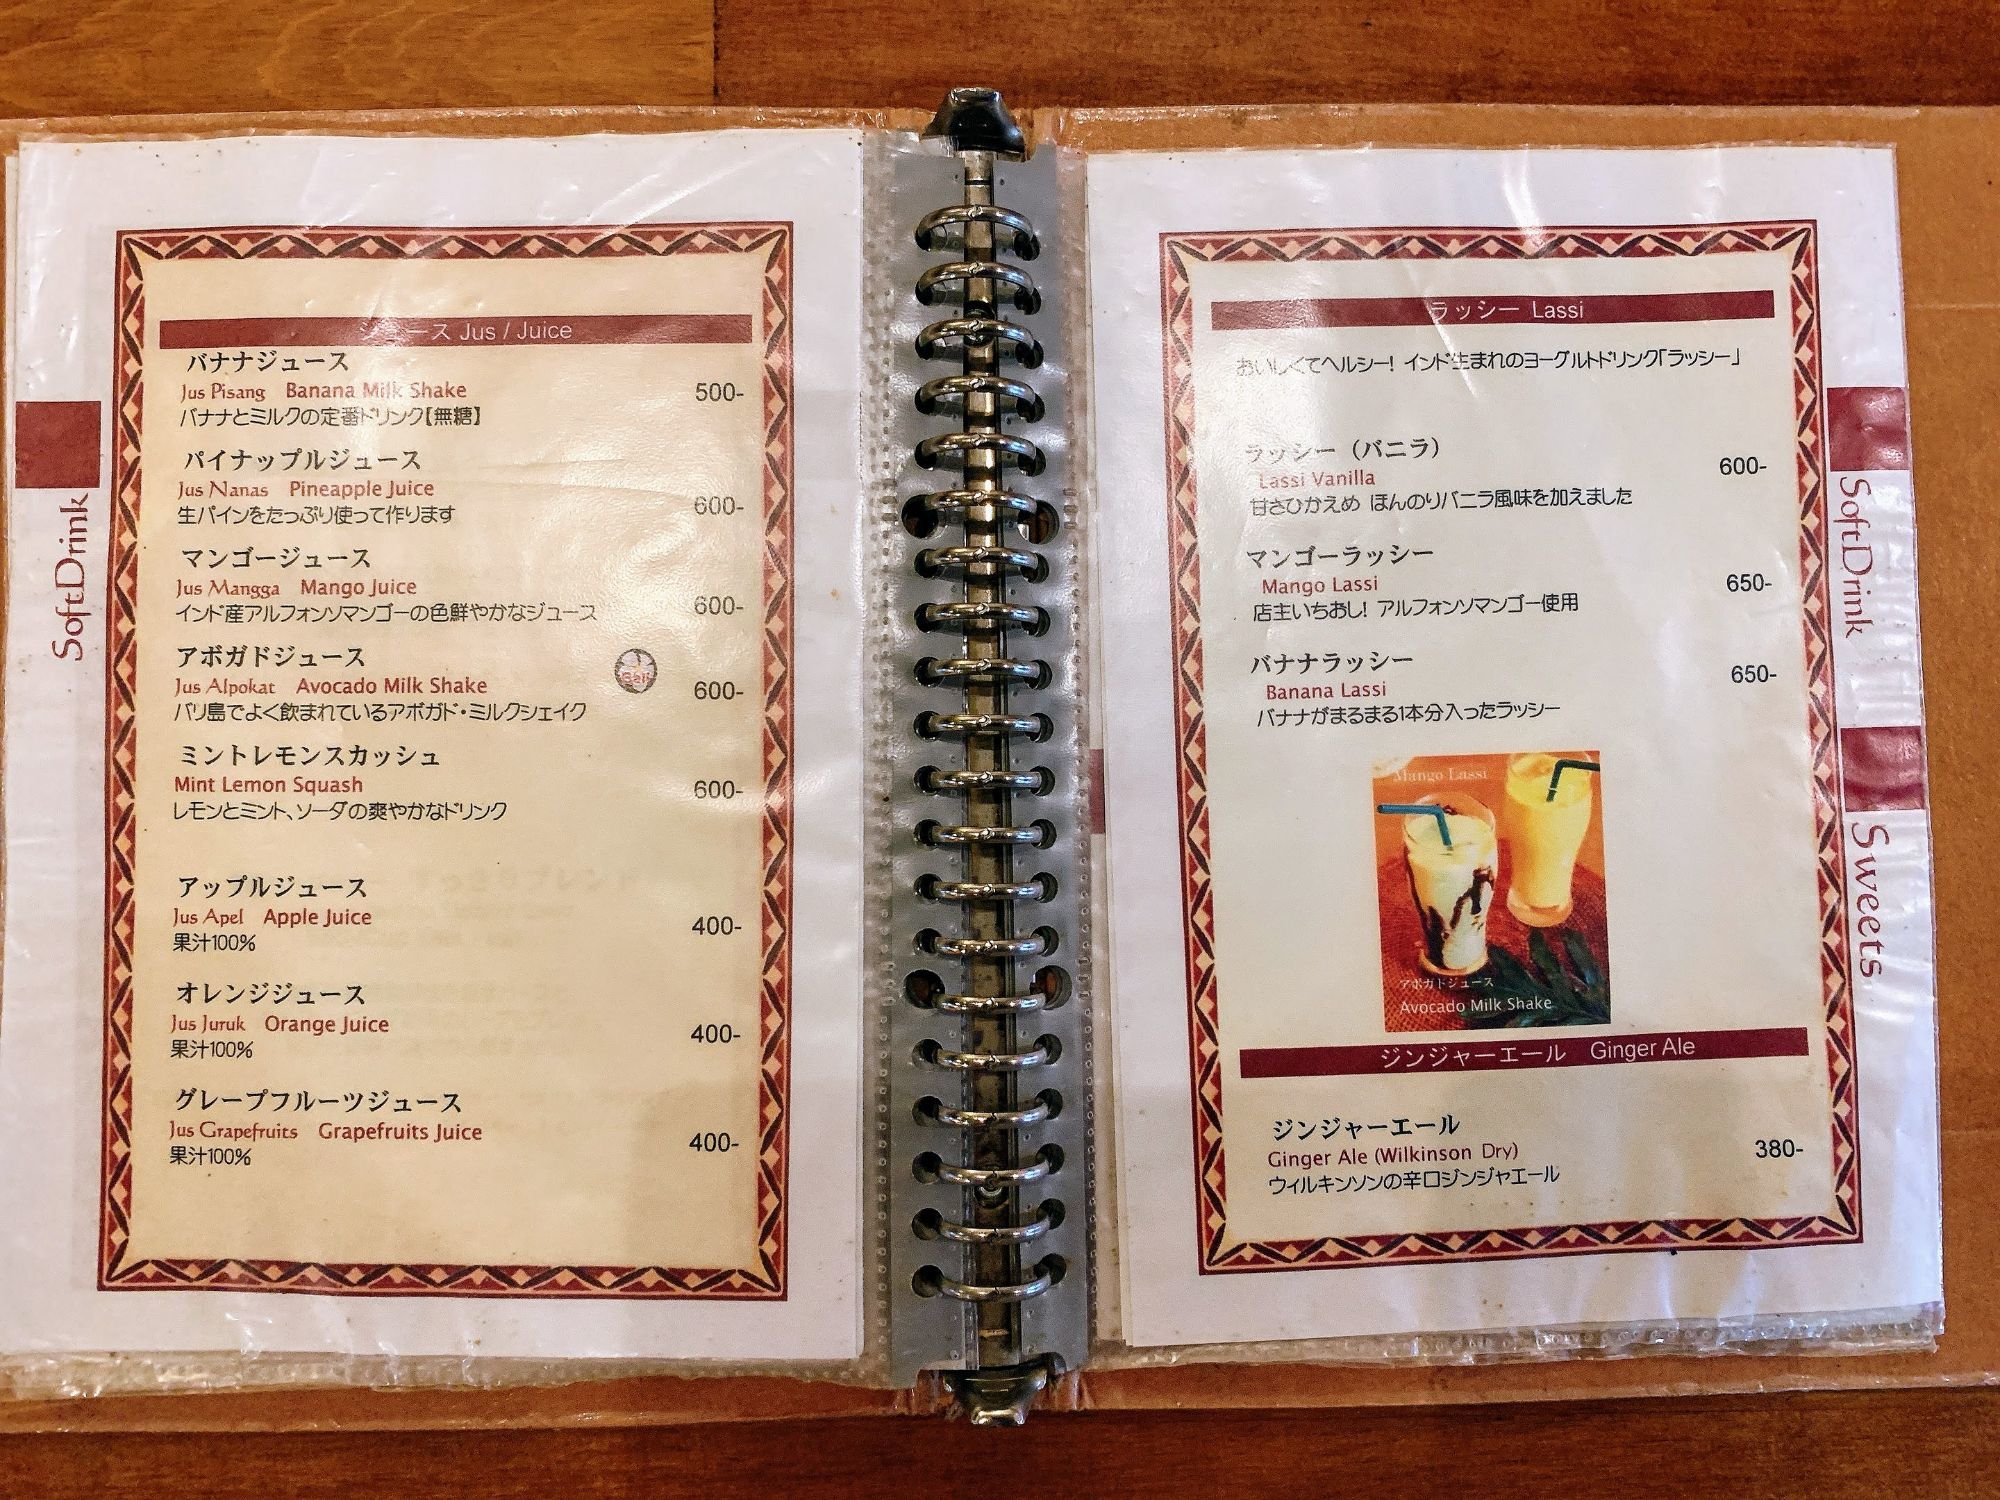 SoftDrink
ース Jus / Juice
バナナジュース
Jus Pisang Banana Milk Shake
500-
バナナとミルクの定番ドリンク【無糖】
パイナップルジュース
Jus Nanas Pineapple Juice
600-
生パインをたっぷり使って作ります
マンゴージュース
Jus Mangga Mango Juice
600-
インド産アルフォンソマンゴーの色鮮やかなジュース
アボガドジュース
Jus Alpokat Avocado Milk Shake
Bali
600-
バリ島でよく飲まれているアボガド・ミルクシェイク
ミントレモンスカッシュ
Mint Lemon Squash
600-
レモンとミント、ソーダの爽やかなドリンク
アップルジュース
Jus Apel Apple Juice
400-
果汁100%
オレンジジュース
Jus Juruk Orange Juice
400-
果汁100%
グレープフルーツジュース
Jus Grapefruits Grapefruits Juice
400-
果汁100%
ラッシー Lassi
おいしくてヘルシー! インド生まれのヨーグルトドリンク「ラッシー」
ラッシー（バニラ）
Lassi Vanilla
600-
甘さひかえめ ほんのりバニラ風味を加えました
マンゴーラッシー
Mango Lassi
650-
店主いちおし! アルフォンソマンゴー使用
バナナラッシー
Banana Lassi
650-
バナナがまるまる1本分入ったラッシー
Mango Lassi
アボガドジュース
Avocado Milk Shake
ジンジャーエール Ginger Ale
ジンジャーエール
Ginger Ale (Wilkinson Dry)
380-
ウィルキンソンの辛口ジンジャエール
SoftDrink
Sweets